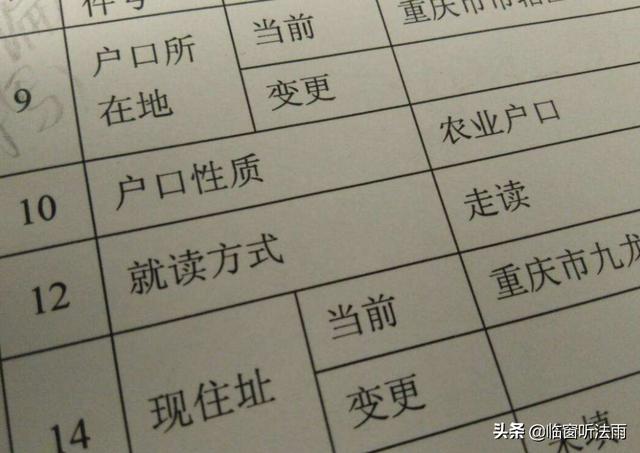 9
户口所
在地
当前
变更
10
户口性质
农业户口
12
就读方式
走读
14
现住址
当前
重庆市九龙
变更
头条 @临窗听法雨